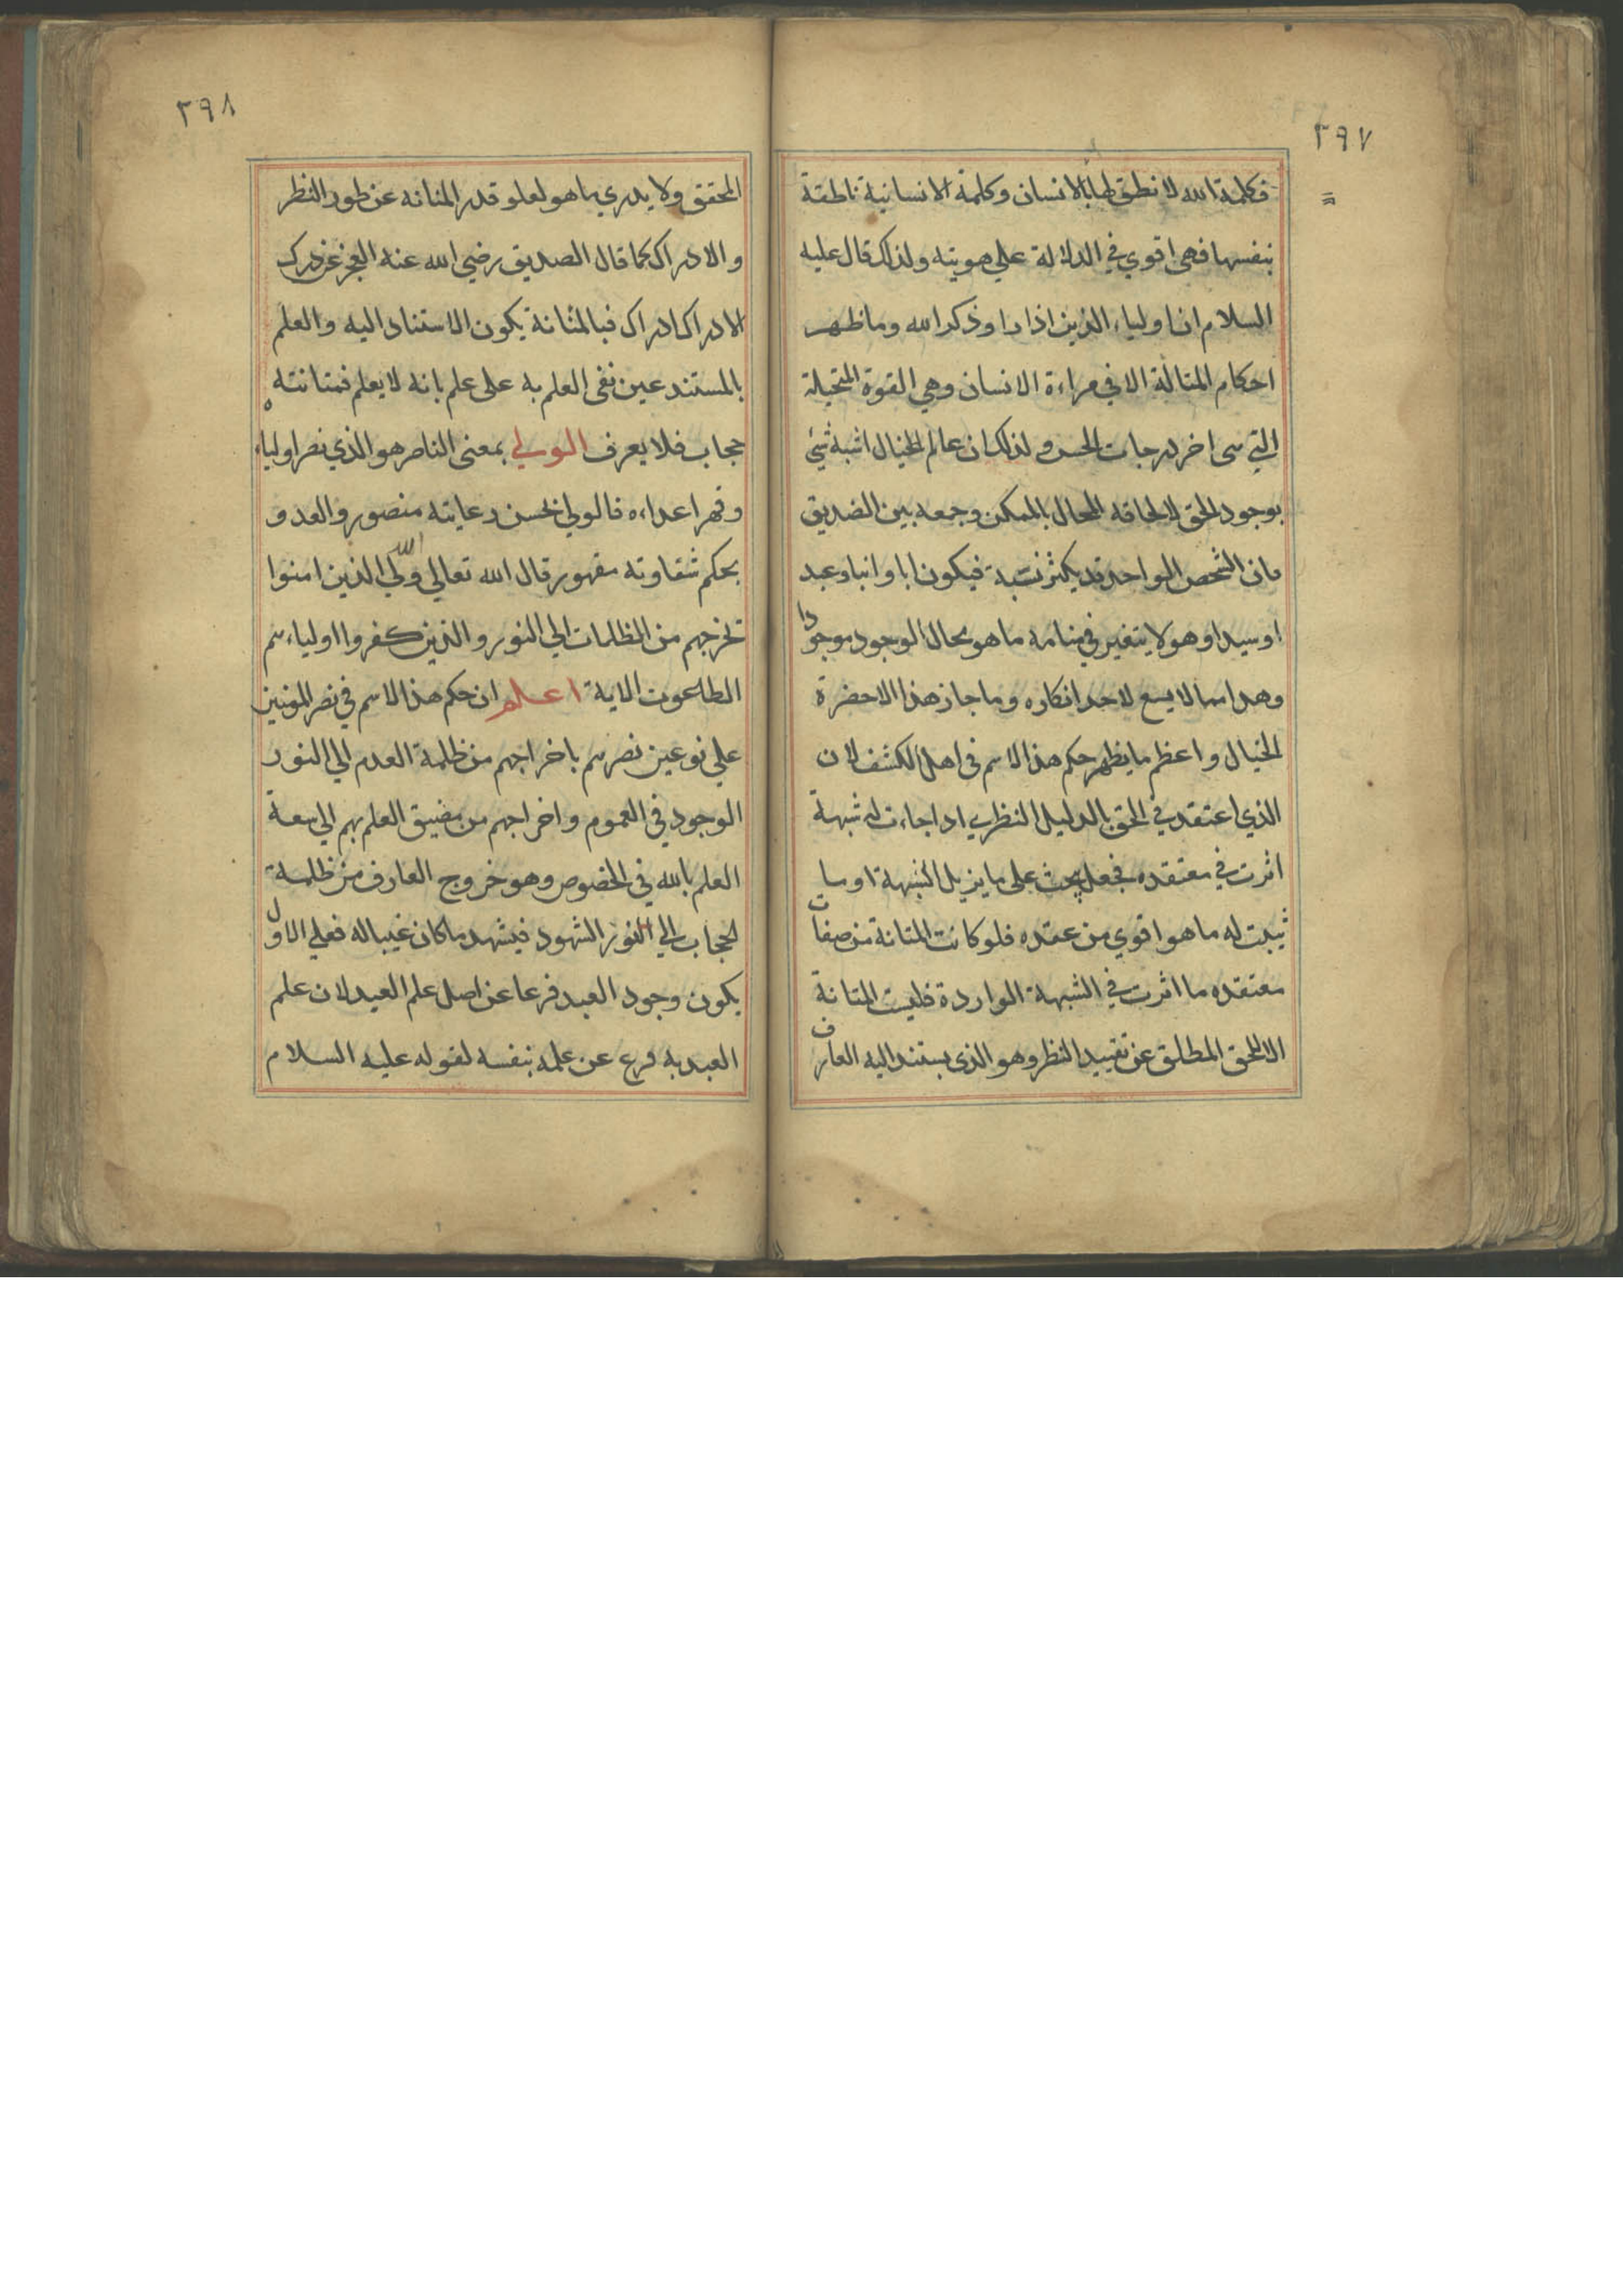 ٢٩٧
فكلمة الله لا نطق لها الا بالانسان وكلمة الانسانية ناطقة
بنفسها فهى اقوي في الدلالة علي هويته ولذلك قال عليه
السلام ان اولياء الذين اذا راوا ذكر الله وما ظهر
احكام المتانة الا في مراءة الانسان وهي القوة المتخيلة
التي سى اخر درجات الحس ولذلك ان عالم الخيال اشبة شئ
بوجود الحق لالحاقه المحال بالممكن وجمعه بين الضديق
فان الشخص الواحد قد يكثر نسبة فيكون ابا وابنا وعبد
اوسيدا وهو لا يتغير في منامه ما هو بحال الوجود موجودا
وهدا مما لا يسع لاحد انكاره وما جاز هذا الا حضرة
الخيال واعظم ما يظهر حكم هذا الاسم في اهل الكشف لان
الذي اعتقد في الحق بالدليل النظري اداجاءت له شبهة
اثرت في معتقده فجعل يبحث على ما يزيل الشبهة او ما
ثيبت له ما هو اقوي من عقده فلو كانت المتانة من صفات
معتقده ما اثرت في الشبهة الواردة فليت المتانة
الا للحق المطلق عن تقييد النظر وهو الذى يستند اليه العارف
٢٩٨
المحقق ولا يدري ما هو لعلو قدر المتانه عن طور النظر
والادراك كما قال الصديق رضي الله عنه العجز عن درك
الادراك ادراك فبالمثانة يكون الاستناد اليه والعلم
بالمستند عين نفى العلم به على علم بانه لا يعلم فمتانته
حجاب فلا يعرف الولي بمعنى الناصر هو الذي نصر اولياءه
وقهر اعداءه فالولي لحسن رعايته منصور والعدو
بحكم شقاوته مقهور قال الله تعالي الله ولي الذين امنوا
تخرجهم من الظلمات الي النور والذين كفروا اولياءسم
الطاعوت الاية اعلم ان حكم هذا الاسم في نصر المؤمنين
علي نوعين نصرسم باخراجهم من ظلمة العدم الي النور
الوجود في العموم واخراجهم من مضيق العلم بهم الي سعة
العلم بالله في الخصوص وهو خروج العارف من ظلمة
الحجاب الي النور الشهود فيشهد ما كان غيبا له فعلي الاول
يكون وجود العبد فرعا عن اصل علم العبد لان علم
العبد به فرع عن علمه بنفسه لقوله عليه السلام